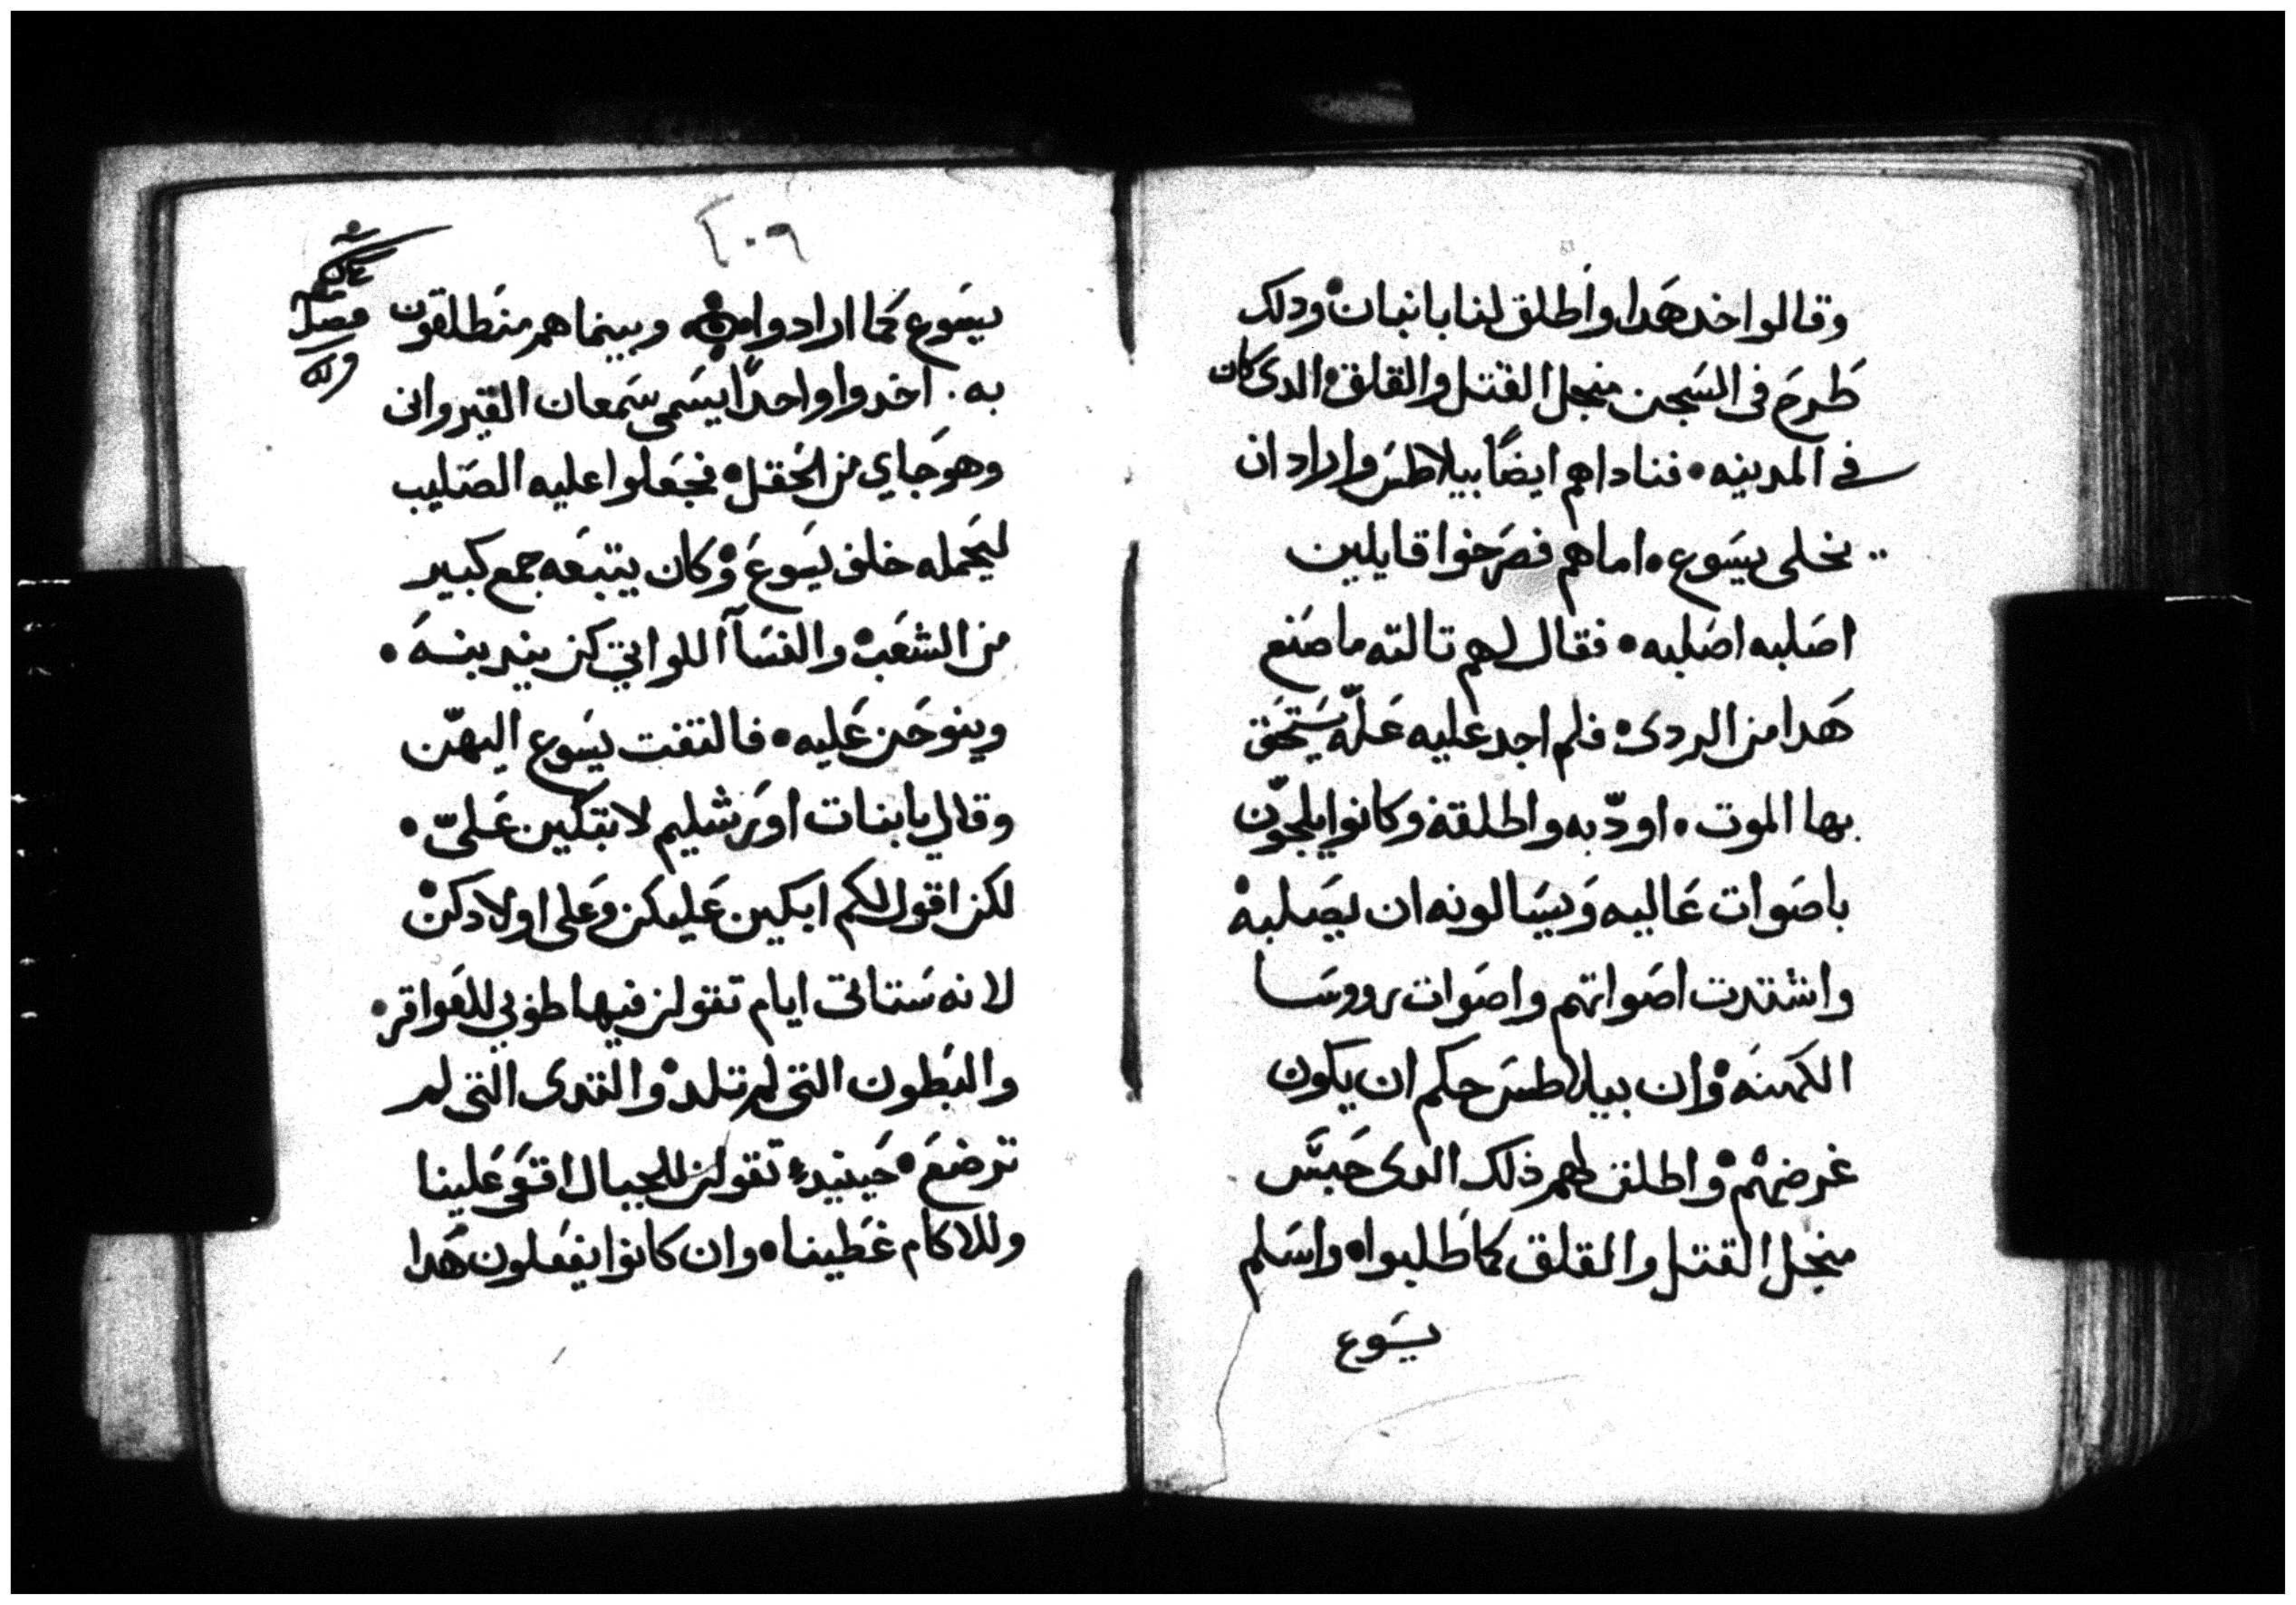 وقالوا خد هدا واطلق لنا بانبان ودلك
طرح فى السجن منجل القتل والقلق الدى كان
فى المدينه • فناداهم ايضًا بيلاطس واراد ان
يخلى يسوع • اما هم فصرخوا قايلين
اصلبه اصلبه • فقال لهم تالته ما صنع
هدا من الردى • فلم اجد عليه علّه يستحق
بها الموت • اودّبه واطلقه وكانوا يلجّون
باصوات عاليه ويسالونه ان يصلبه
واشتدت اصواتهم واصوات رووسا
الكهنه • وان بيلاطس حكم ان يكون
غرضهم • واطلق لهم ذلك الدى حبس
منجل القتل والقلق كما طلبوا • واسلم
يسوع
٢٠٩
يسوع كما ارادوا وبينما هم منطلقون
به • اخدوا واحدًا يسمى سمعان القيروانى
وهو جاي من الحقل • فجعلوا عليه الصليب
ليحمله خلف يسوع • وكان يتبعه جمع كبير
من الشعب • والنسآ اللواتي كن يندبنه •
وينوحن عليه • فالتفت يسوع اليهّن
وقال يا بنات اورشليم لا تبكين علىّ •
لكن اقول لكم ابكين عليكن وعلى اولادكن
لانه ستاتى ايام تقولن فيها طوبي للعواقر •
والبطون التى لم تلد • والتدى التى لم
ترضع • حينيد • تقولن للجبال اقعى علينا
وللاكام غطينا • وان كانوا يفعلون هدا
فصل